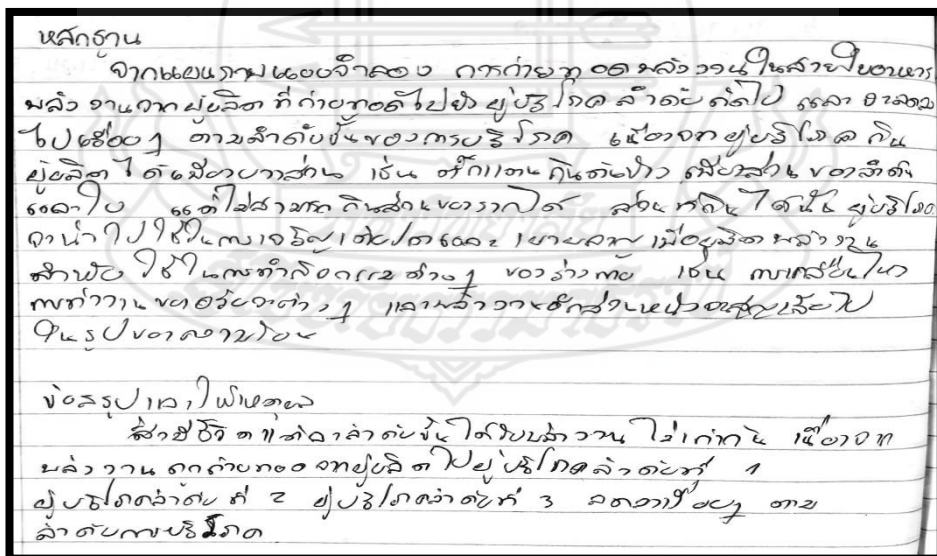 หลักฐาน
จากแผนภาพแบบจำลอง การถ่ายทอดพลังงานในสายใยอาหาร
พลังงานจากผู้ผลิตที่ถ่ายทอดไปยังผู้บริโภคลำดับถัดไป และ
ไปเรื่อยๆ ตามลำดับขั้นของการบริโภค เนื่องจากผู้บริโภคกิน
ผู้ผลิตได้เพียงบางส่วน เช่น ตั๊กแตนกินต้นข้าว เพียงส่วนของลำต้น
และใบ แต่ไม่สามารถกินส่วนของรากได้ ส่วนที่กินได้นั้น ผู้บริโภค
จะนำไปใช้ในการเจริญเติบโตและ เพื่อผลิตพลังงาน
สำหรับใช้ในการทำกิจกรรมต่างๆ ของร่างกาย เช่น การเคลื่อนไหว
การทำงานของอวัยวะต่างๆ และพลังงานอีกส่วนหนึ่งจะสูญเสียไป
ในรูปของความร้อน
ข้อสรุปและให้เหตุผล
สิ่งมีชีวิตแต่ละลำดับขั้นได้รับพลังงานไม่เท่ากัน เนื่องจาก
พลังงานถูกถ่ายทอดจากผู้ผลิตไปผู้บริโภคลำดับที่ 1
ผู้บริโภคลำดับที่ 2 ผู้บริโภคลำดับที่ 3 ลดลงเรื่อยๆ ตาม
ลำดับการบริโภค